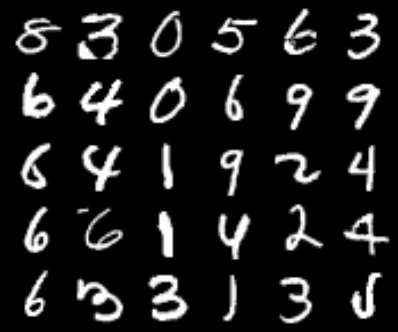 8 3 0 5 6 3
6 4 0 6 9 9
6 4 1 9 2 4
6 6 1 4 2 4
6 3 3 1 3